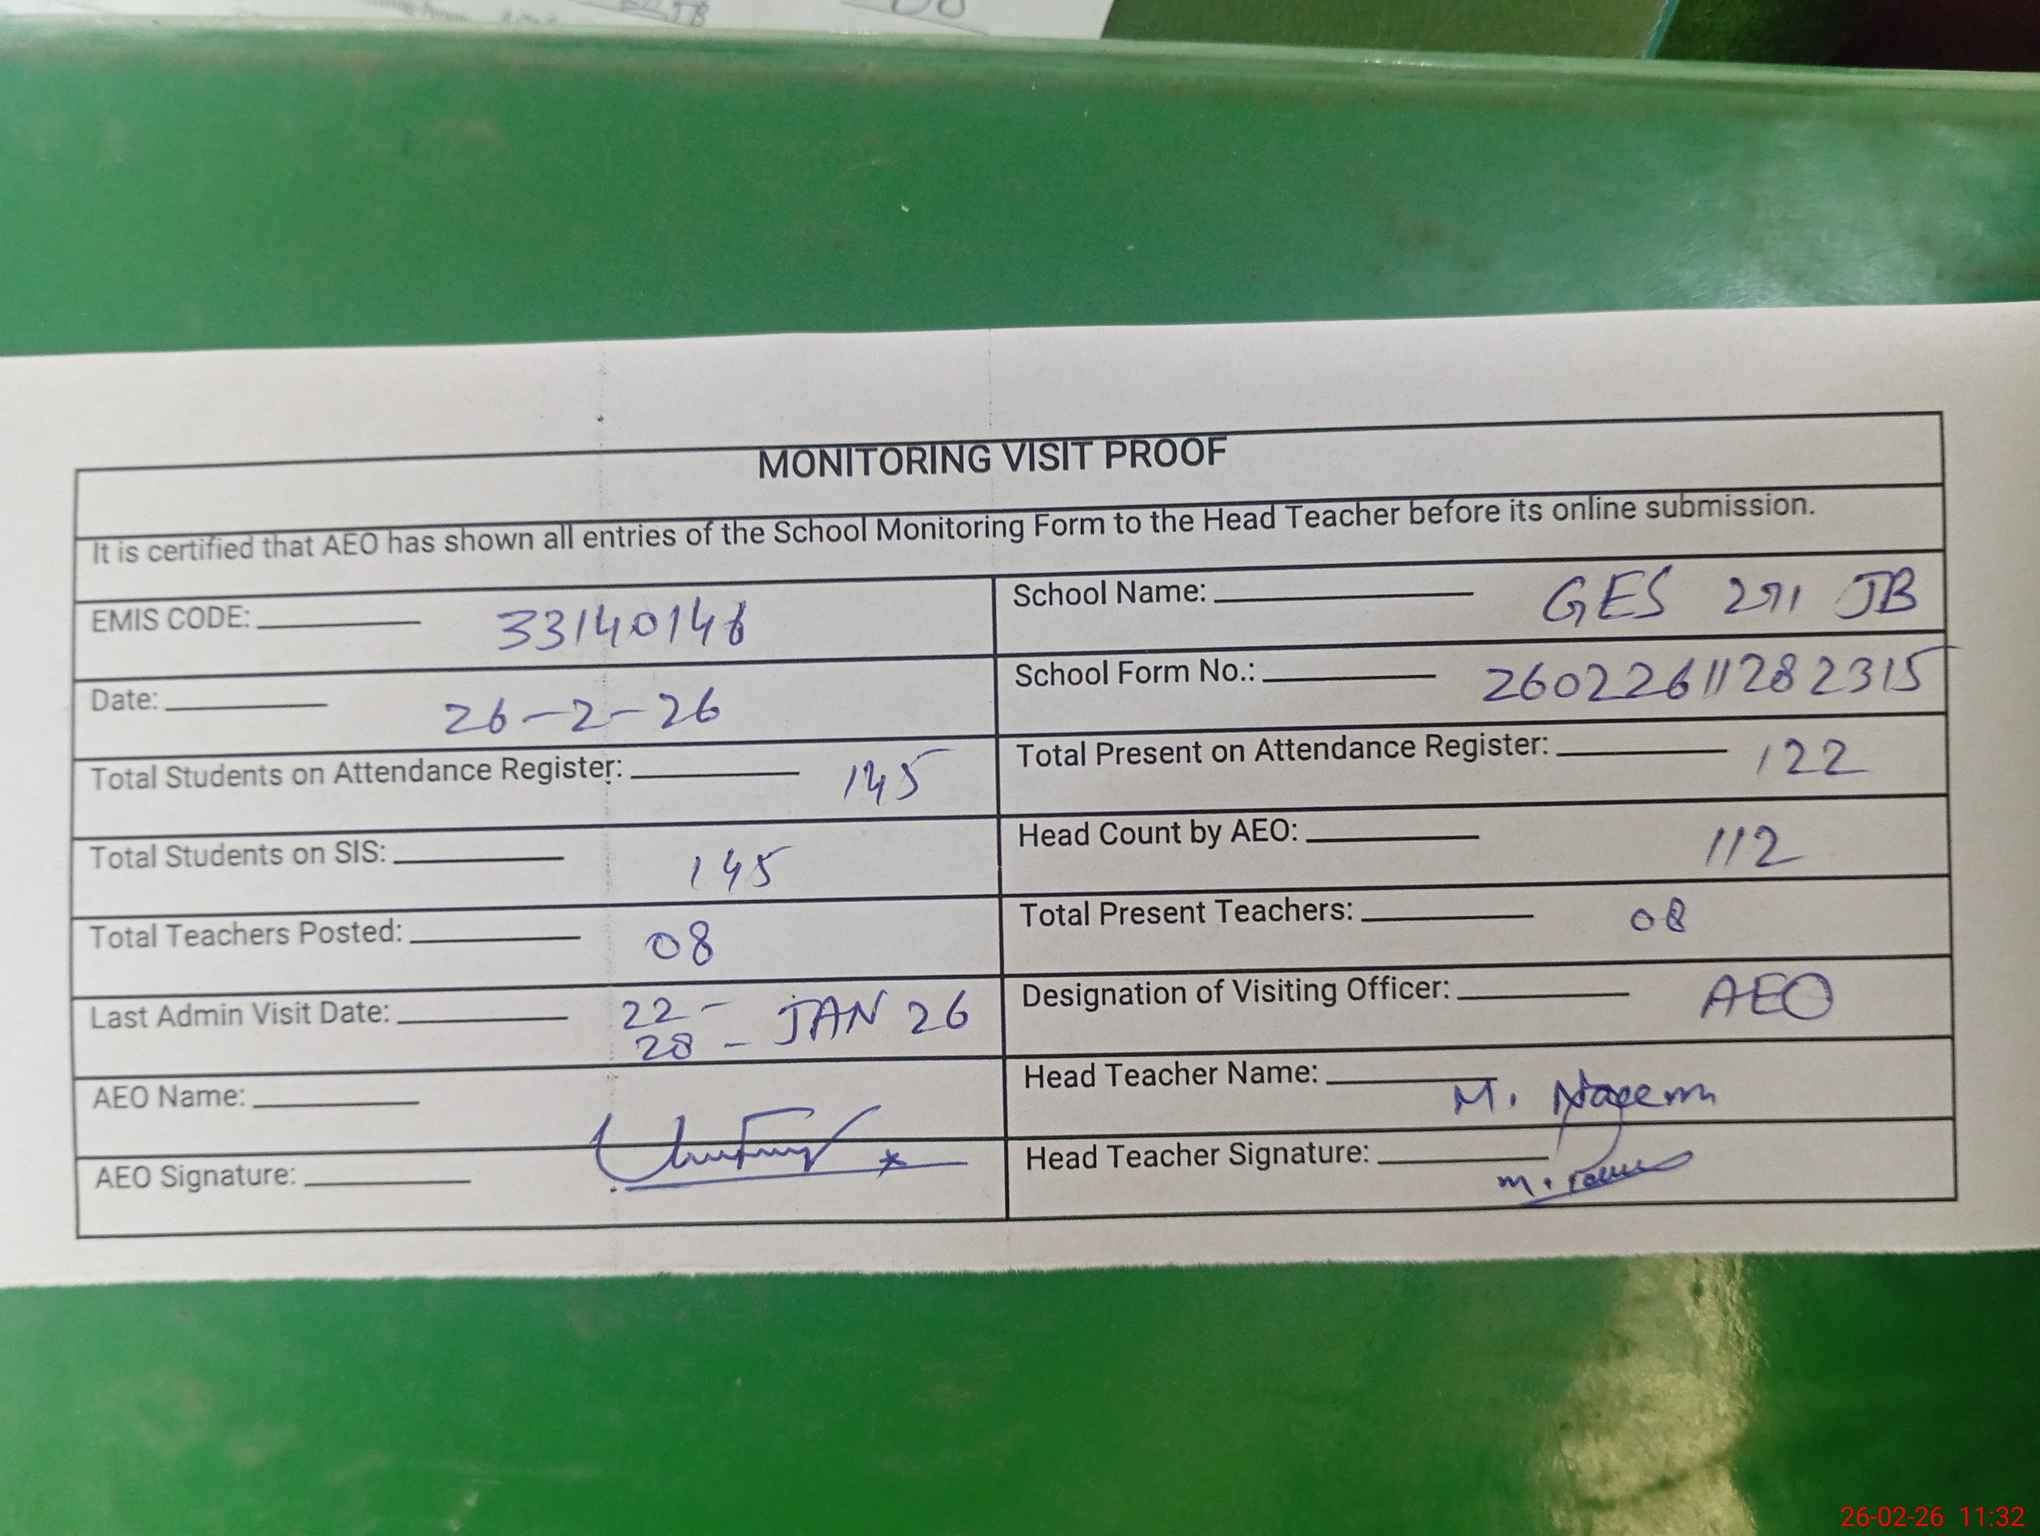 MONITORING VISIT PROOF
It is certified that AEO has shown all entries of the School Monitoring Form to the Head Teacher before its online submission.
EMIS CODE: 33140146
School Name: GES 291 JB
Date: 26-2-26
School Form No.: 26022611282315
Total Students on Attendance Register: 145
Total Present on Attendance Register: 122
Total Students on SIS: 145
Head Count by AEO: 112
Total Teachers Posted: 08
Total Present Teachers: 08
Last Admin Visit Date: 22-
28 - JAN 26
Designation of Visiting Officer: AEO
AEO Name:
Head Teacher Name: M. Naeem
AEO Signature:
Head Teacher Signature:
26-02-26 11:32